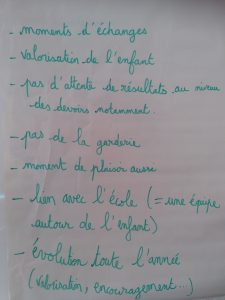 - moments d'échanges
- valorisation de l'enfant
- pas d'attente de résultats au niveau
des devoirs notamment.
- pas de la garderie
- moment de plaisir aussi
- lien avec l'école (= une équipe
autour de l'enfant)
- évolution toute l'année
(valorisation, encouragement...)